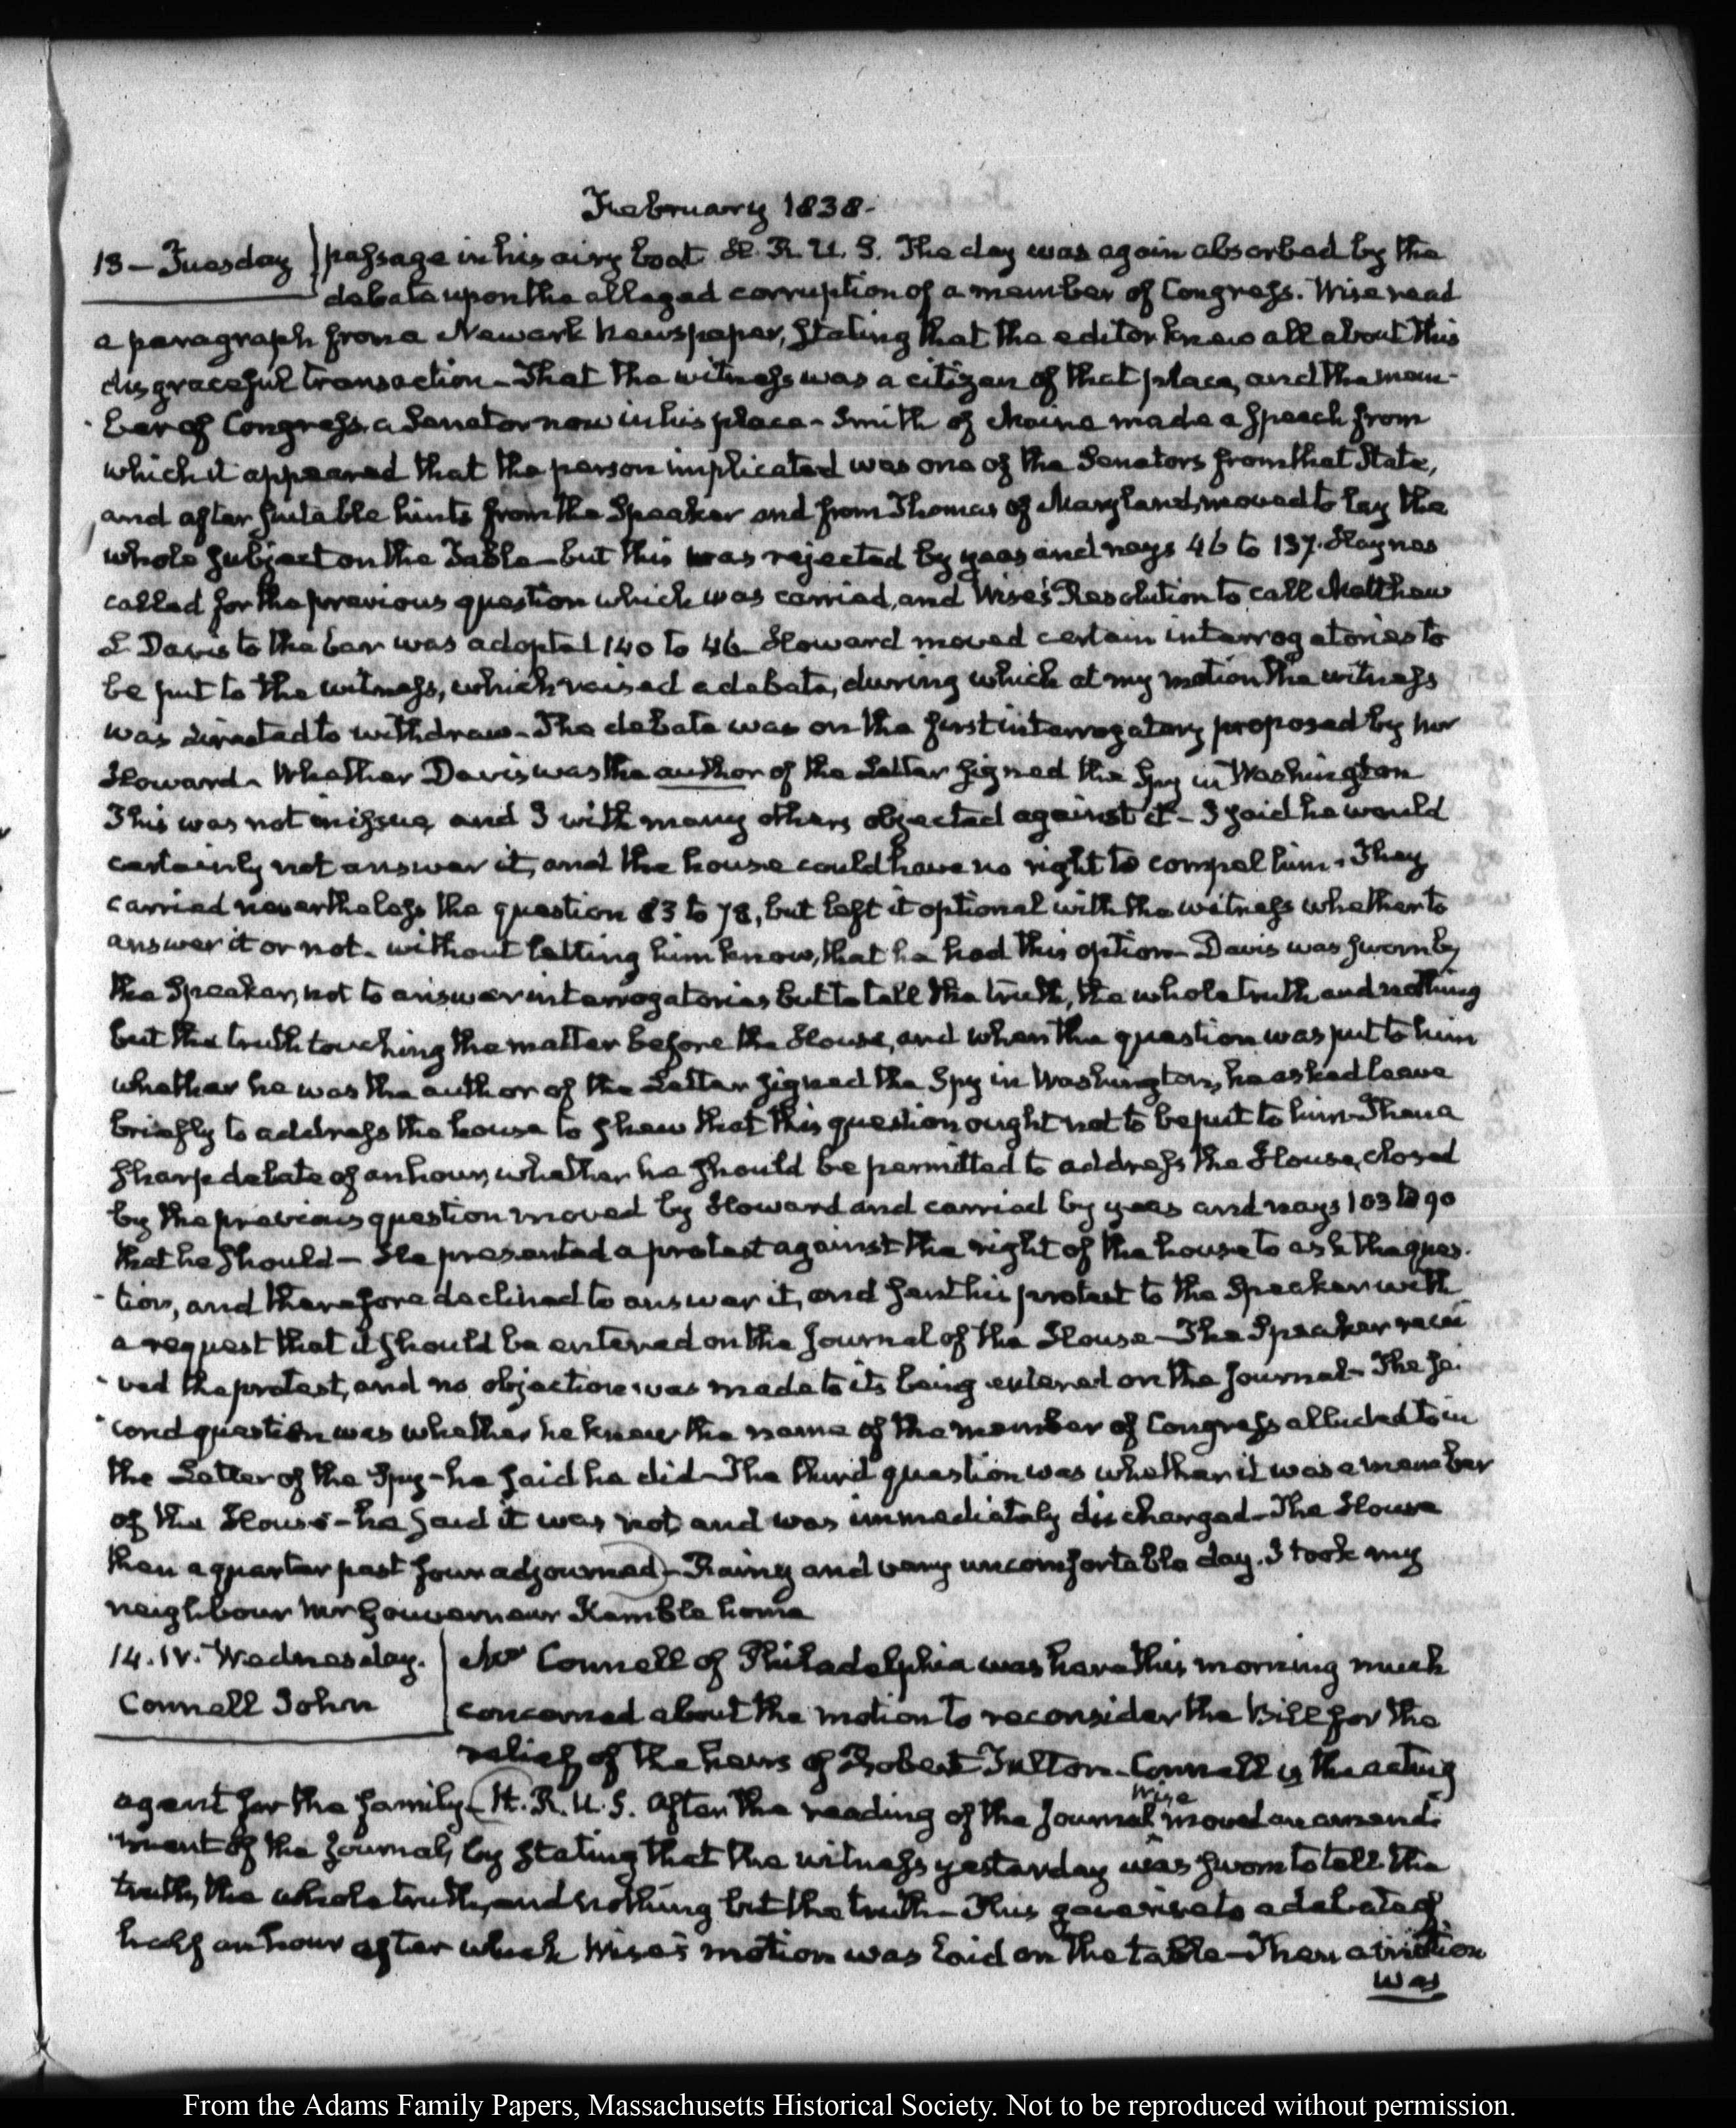 February 1838.
13 — Tuesday
passage in his airy boat H. R. U. S. The day was again absorbed by the
debate upon the alleged corruption of a member of Congress. Wise read
a paragraph from a Newark newspaper, stating that the editor knew all about this
disgraceful transaction – That the witness was a citizen of that place, and the mem-
ber of Congress, a Senator now in his place – Smith of Maine made a Speech from
which it appeared that the person implicated was one of the Senators from that State,
and after suitable hints from the Speaker and from Thomas of Maryland, moved to lay the
whole subject on the Table – but this was rejected by yeas and nays 46 to 137. Haynes
called for the previous question which was carried, and Wise's Resolution to call Matthew
L Davis to the bar was adopted 140 to 46 – Howard moved certain interrogatories to
be put to the witness, which raised a debate, during which at my motion the witness
was directed to withdraw – The debate was on the first interrogatory proposed by Mr
Howard – Whether Davis was the author of the Letter signed the Spy in Washington
This was not in issue, and I with many others objected against it – I said he would
certainly not answer it, and the house could have no right to compel him. They
carried nevertheless the question 83 to 78, but left it optional with the witness whether to
answer it or not – without letting him know, that he had this option – Davis was sworn by
the Speaker, not to answer interrogatories but to tell the truth, the whole truth and nothing
but the truth touching the matter before the House, and when the question was put to him
whether he was the author of the Letter signed the Spy in Washington, he asked leave
briefly to address the house to shew that this question ought not to be put to him – Then a
sharp debate of an hour, whether he should be permitted to address the House, closed
by the previous question moved by Howard and carried by yeas and nays 103 to 90
that he should – He presented a protest against the right of the house to ask the ques-
-tion, and therefore declined to answer it, and sent his protest to the Speaker with
a request that it should be entered on the Journal of the House – The Speaker recei
-ved the protest, and no objection was made to its being entered on the Journal – The se-
-cond question was whether he knew the name of the member of Congress alluded to in
the Letter of the Spy – he said he did – The third question was whether it was a member
of the House – he said it was not and was immediately discharged – The House
then a quarter past four adjourned – Rainy and very uncomfortable day. I took my
neighbour Mr Gouverneur Kemble home
14. IV. Wednesday.
Connell John
Mr Connell of Philadelphia was here this morning much
concerned about the motion to reconsider the Bill for the
relief of the heirs of Robert Fulton – Connell is the acting
agent for the family – H. R. U. S. After the reading of the Journal Wise moved an amend-
-ment of the Journal, by stating that the witness yesterday was sworn to tell the
truth, the whole truth, and nothing but the truth – This gave rise to a debate of
half an hour after which Wise's motion was laid on the table – Then a motion
was
From the Adams Family Papers, Massachusetts Historical Society. Not to be reproduced without permission.